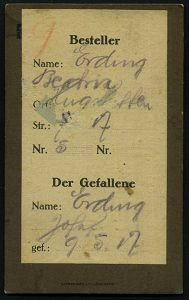 Besteller
Name: Erding
Beatrix
Ort:
Str.: 17
Nr. 5 Nr.
Der Gefallene
Name: Erding
Josef
gef.: 9 5. 17